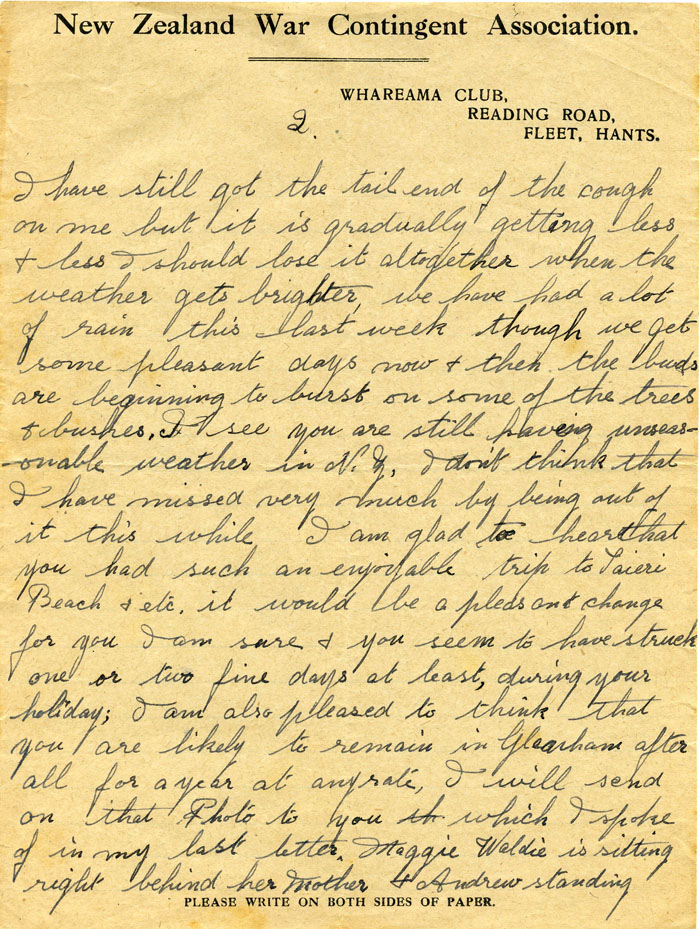 New Zealand War Contingent Association.
WHAREAMA CLUB,
READING ROAD,
FLEET, HANTS.
2.
I have still got the tail end of the cough
on me but it is gradually getting less
& less I should lose it altogether when the
weather gets brighter, we have had a lot
of rain this last week though we get
some pleasant days now & then the buds
are beginning to burst on some of the trees
& bushes. I see you are still having unseas-
-onable weather in N.Z. I don't think that
I have missed very much by being out of
it this while I am glad to hear that
you had such an enjoyable trip to Taieri
Beach & etc. it would be a pleasant change
for you I am sure & you seem to have struck
one or two fine days at least, during your
holiday; I am also pleased to think that
you are likely to remain in Glenham after
all for a year at anyrate, I will send
on that Photo to you th which I spoke
of in my last letter. Maggie Waldie is sitting
right behind her Mother & Andrew standing
PLEASE WRITE ON BOTH SIDES OF PAPER.